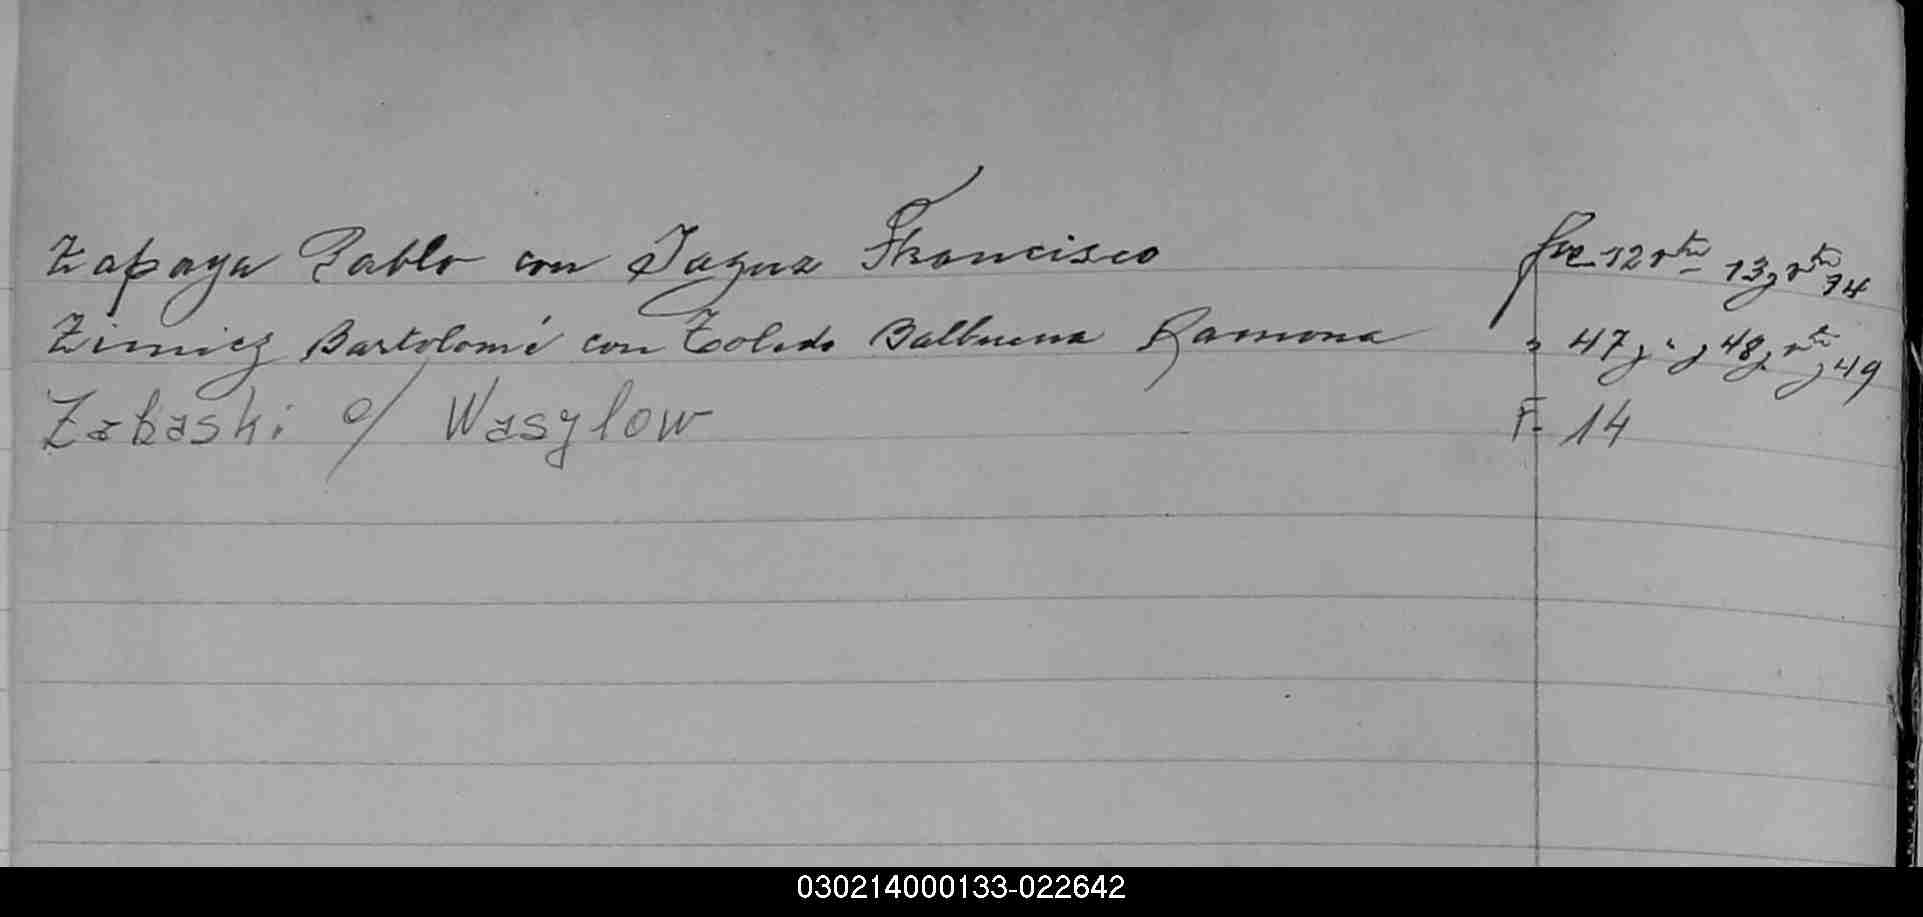 Zapaya Pablo con Jaguz Francisco fje 12 vta 13, vta 14
Zimicz Bartolomé con Toledo Balbuena Ramona " 47, " , 48, vta , 49
Zabaski c/ Wasylow F- 14
030214000133-022642